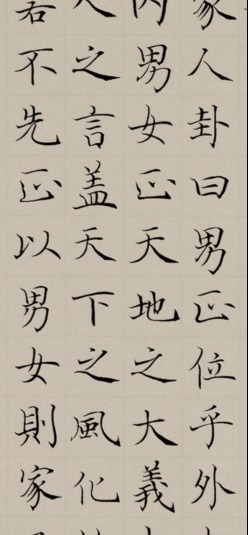 家人卦曰男正位乎外
内男女正天地之大義
人之言盖天下之風化
若不先正以男女則家